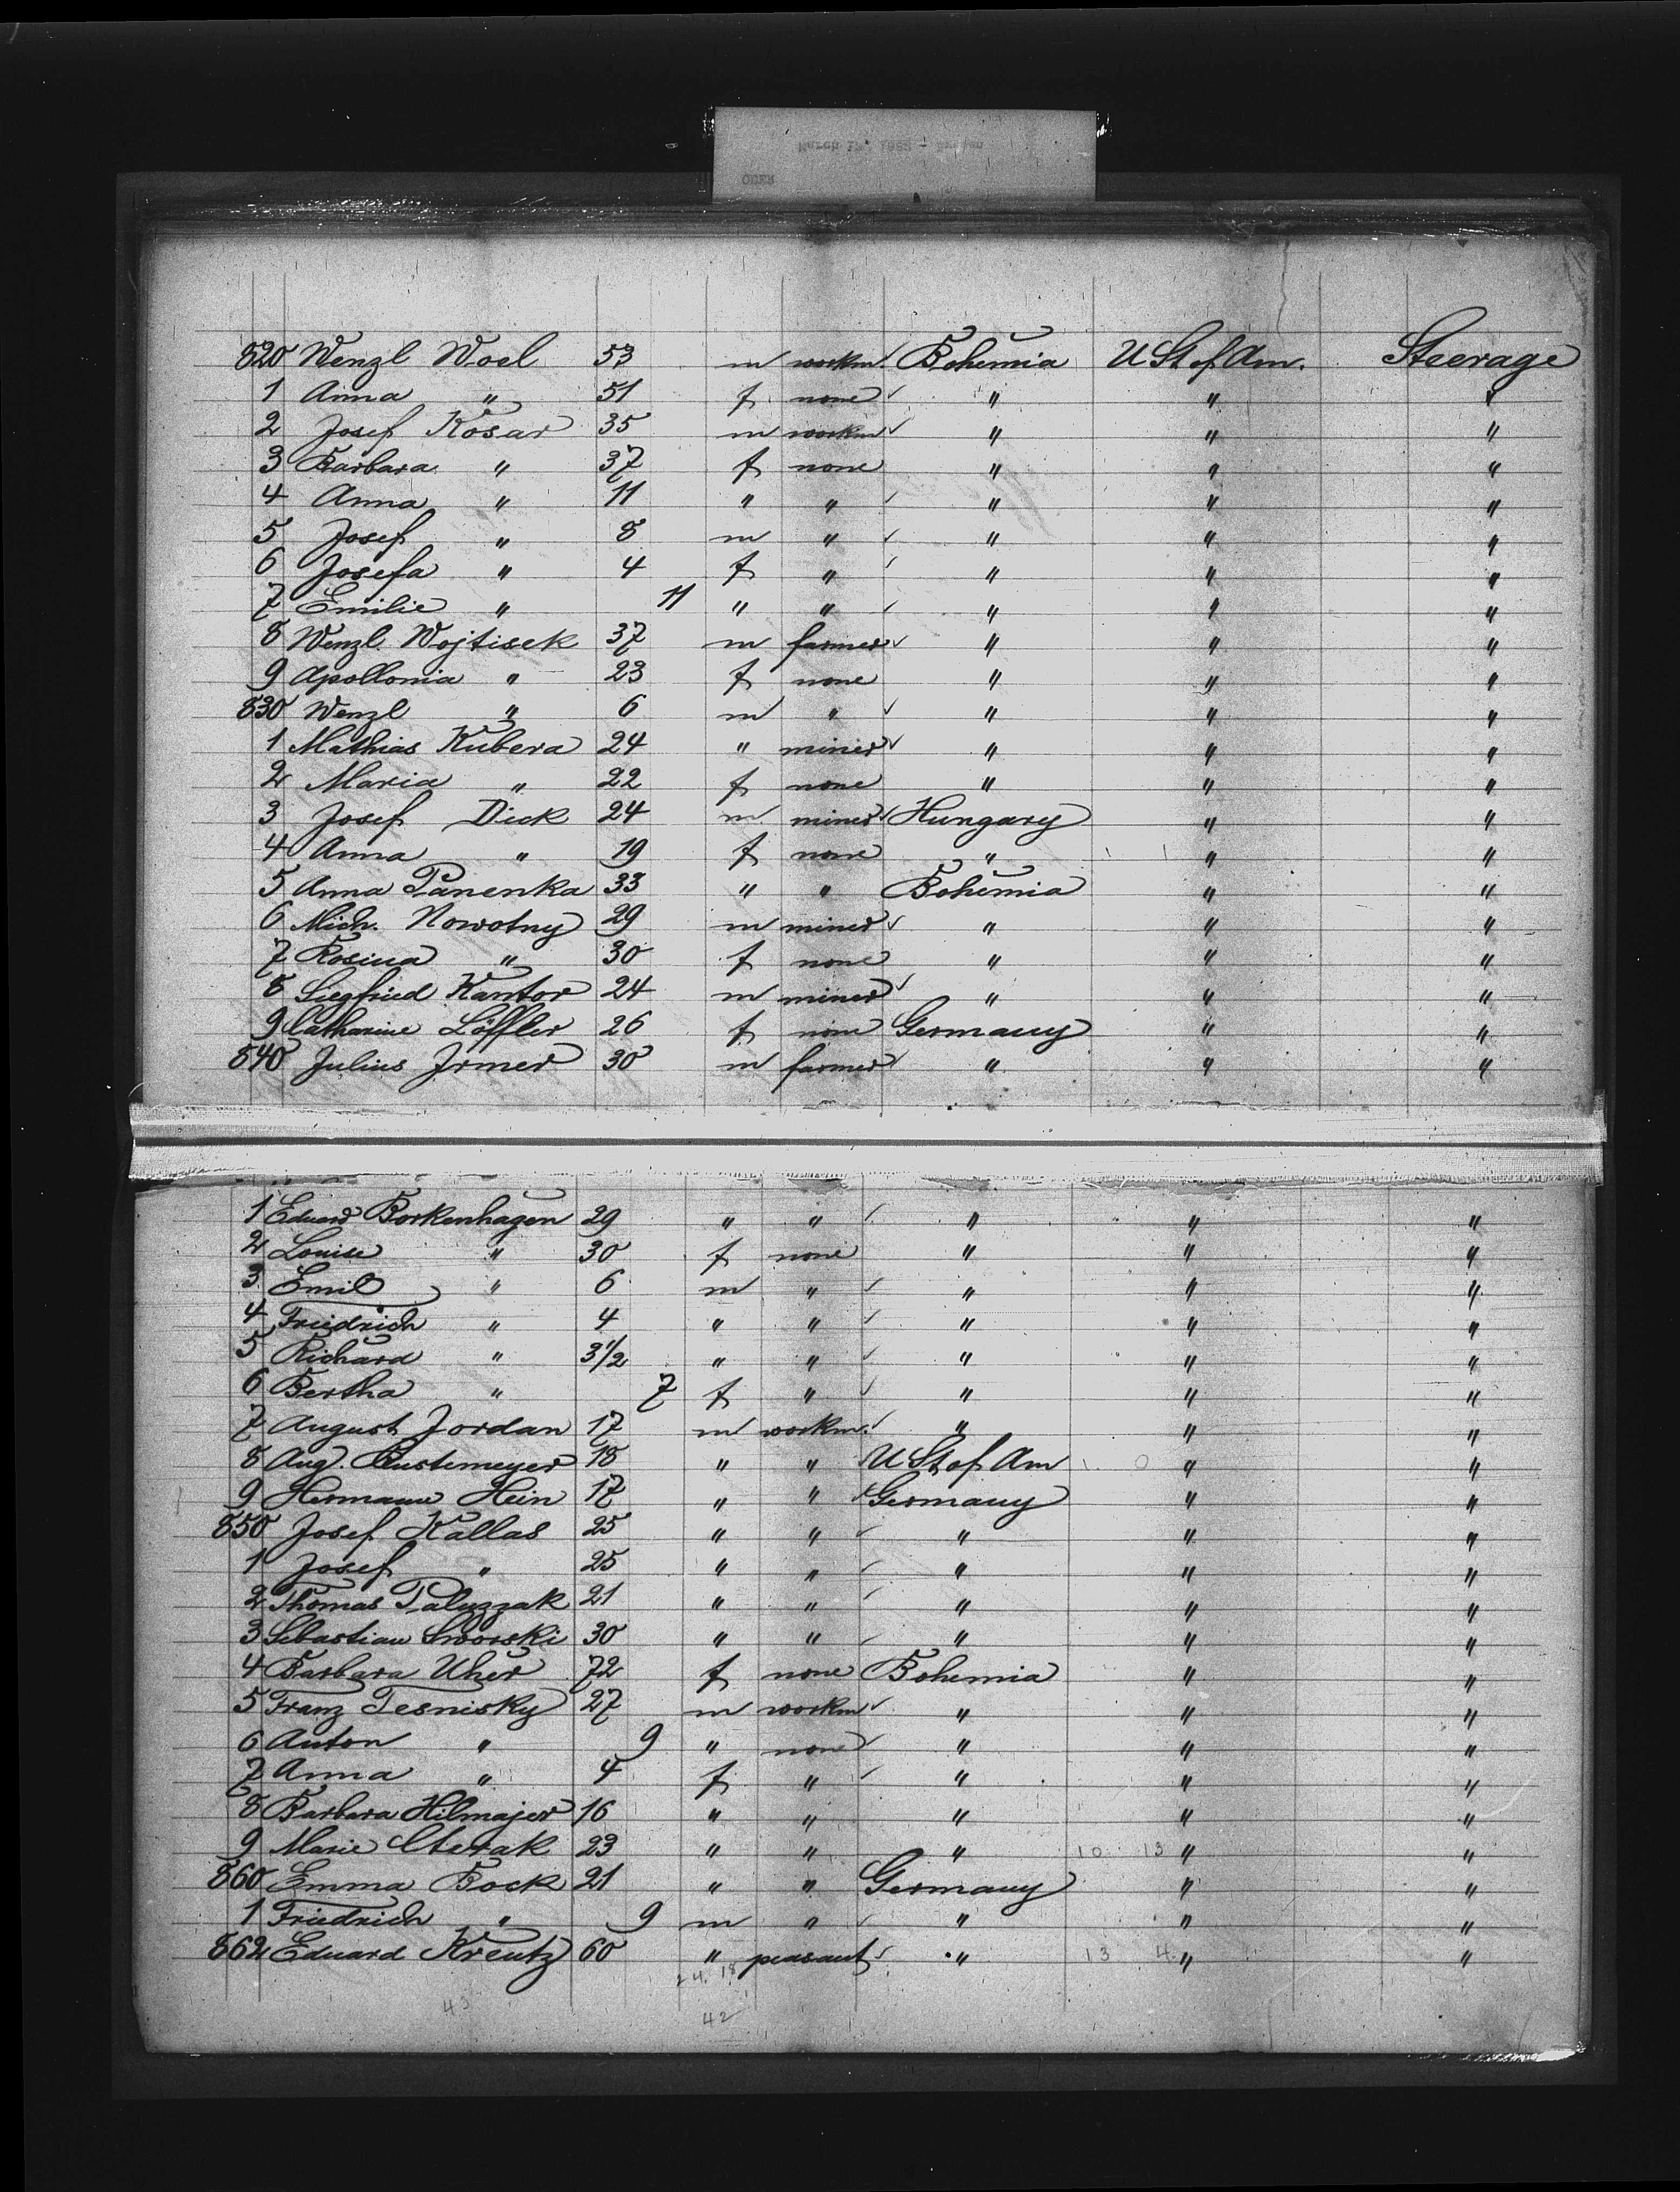 820 Wenzl Woel 53 m workm. Bohemia U St of Am. Steerage
1 Anna " 51 f none " " "
2 Josef Kosar 35 m workm " " "
3 Barbara " 37 f none " " "
4 Anna " 11 " " " " "
5 Josef " 8 m " " " "
6 Josefa " 4 f " " " "
7 Emilie " 11 " " " " "
8 Wenzl. Wojtisek 37 m farmer " " "
9 Apollonia " 23 f none " " "
830 Wenzl " 6 m " " " "
1 Mathias Kubera 24 " miner " " "
2 Maria " 22 f none " " "
3 Josef Dick 24 m miner Hungary " "
4 Anna " 19 f none " " "
5 Anna Panenka 33 " " Bohemia " "
6 Mich. Nowotny 29 m miner " " "
7 Rosina " 30 f none " " "
8 Siegfried Kantor 24 m miner " " "
9 Catharine Löffler 26 f none Germany " "
840 Julius Jrmer 30 m farmer " " "
1 Eduard Borkenhagen 29 " " " " "
2 Louise " 30 f none " " "
3 Emil " 6 m " " " "
4 Friedrich " 4 " " " " "
5 Richard " 3 1/2 " " " " "
6 Bertha " 7 f " " " "
7 August Jordan 17 m workm. " " "
8 Aug. Bustemeyer 18 " " U St of Am " "
9 Hermann Hein 17 " " Germany " "
850 Josef Kallas 25 " " " " "
1 Josef " 25 " " " " "
2 Thomas Paluzzak 21 " " " " "
3 Sebastian 30 " " " " "
4 Barbara Uher 72 f none Bohemia " "
5 Franz Tesnisky 27 m workm " " "
6 Anton " 9 " none " " "
7 Anna " 4 f " " " "
8 Barbara Hilmajer 16 " " " " "
9 Marie 23 " " " 10 13 " "
860 Emma Bock 21 " " Germany " "
1 Friedrich " 9 m " " " "
862 Eduard Kreutz 60 " peasant " 13 4 " "
24. 18
43
42